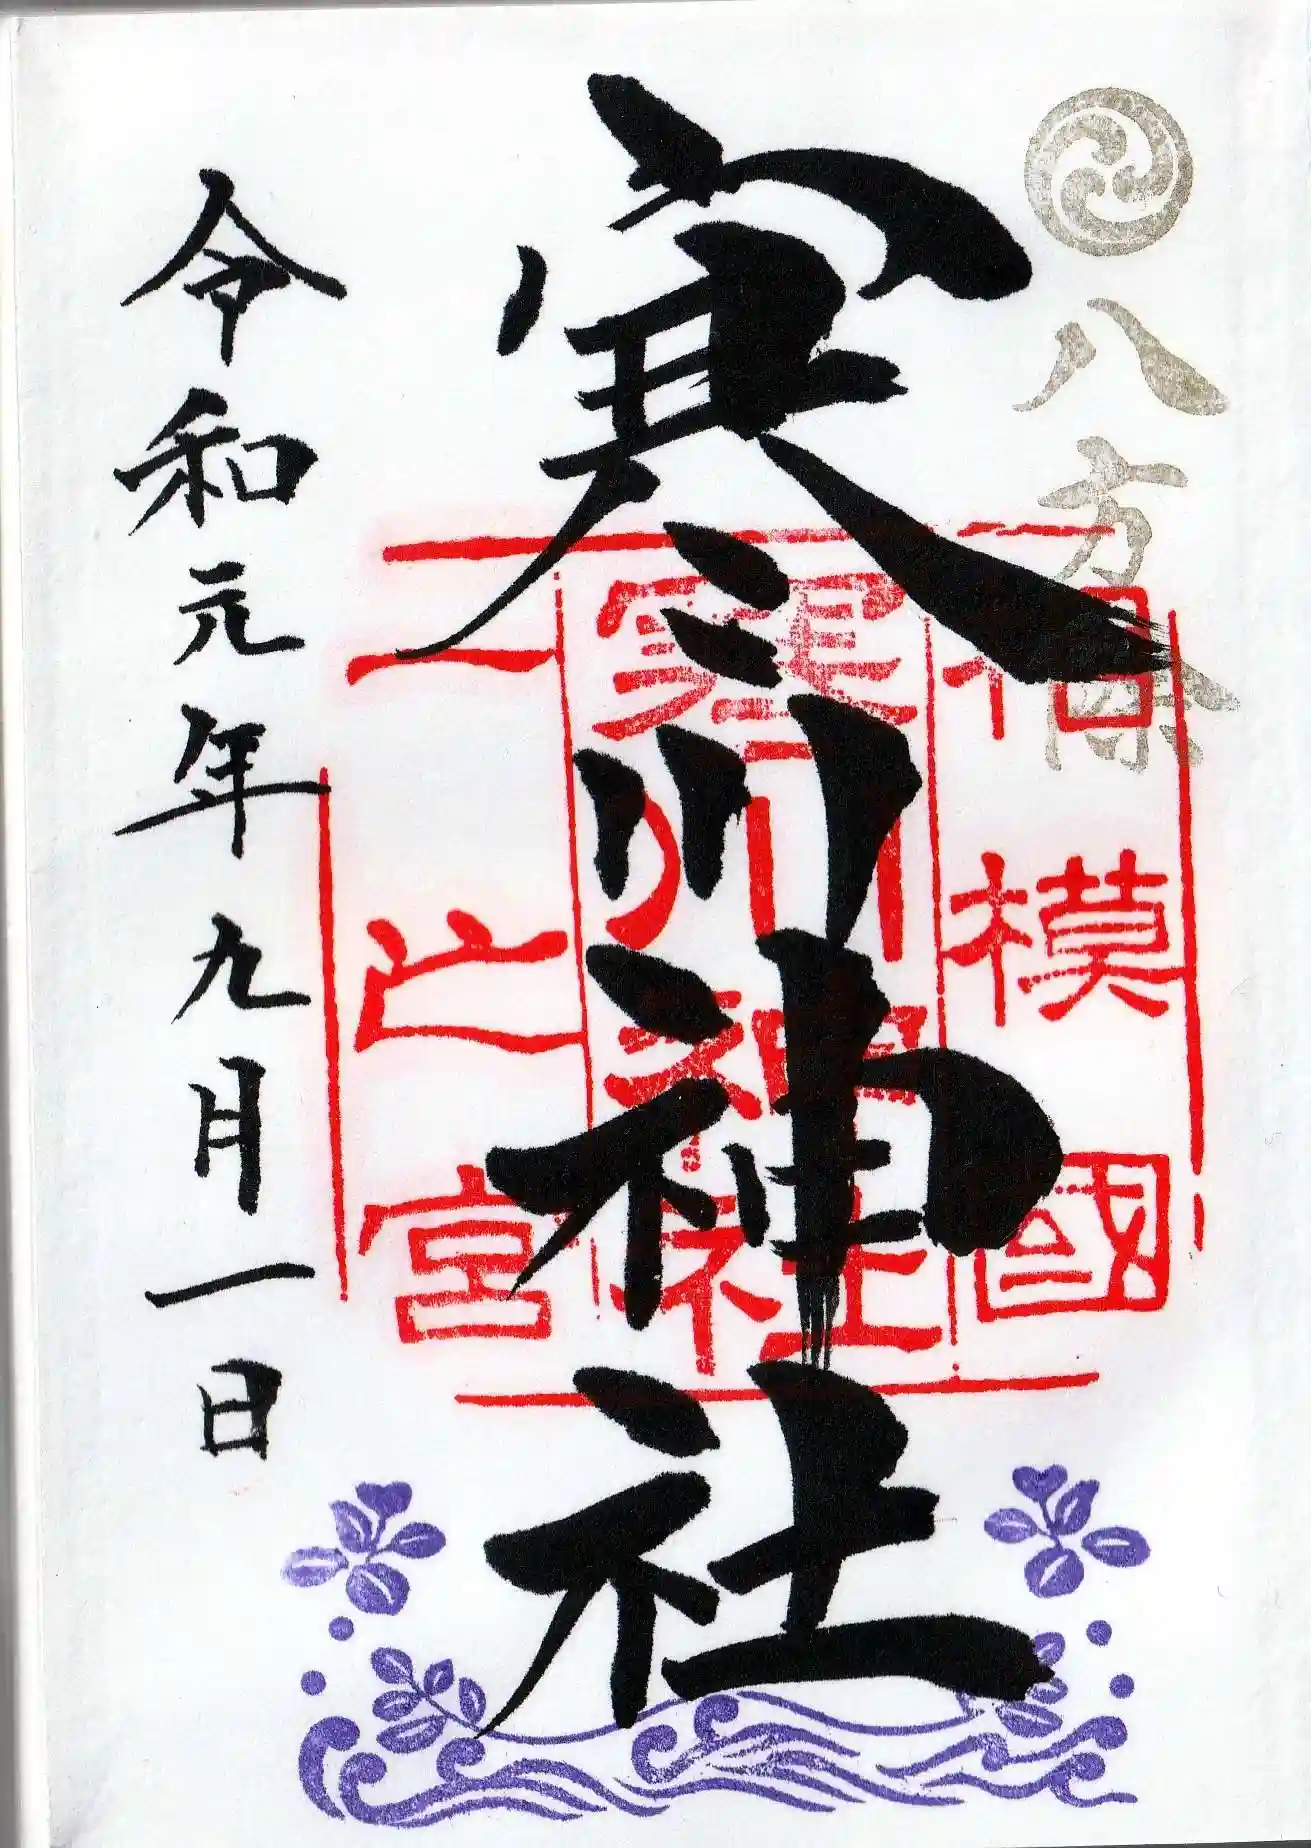 八方除
相模國
寒川神社
一之宮
寒川神社
令和元年九月一日